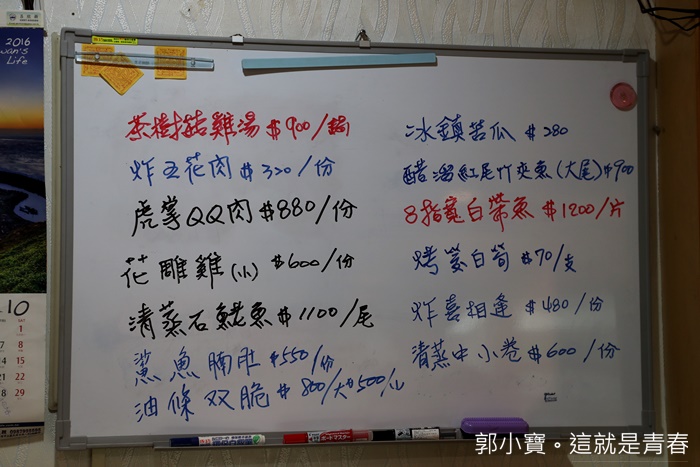 2016
wan's
Life
10
1
7 8
14 15
21 22
28 29
茶樹菇雞湯 $900/鍋
炸五花肉 $320/份
虎掌QQ肉 $880/份
花雕雞(小) $600/份
清蒸石魷魚 $1100/尾
鯊魚腩肚 $550/份
油條双脆 $800/大 $500/小
冰鎮苦瓜 $280
醋溜紅尾竹夾魚(大尾) $900
8指寬白帶魚 $1200/片
烤筊白筍 $70/支
炸喜相逢 $480/份
清蒸中小卷 $600/份
ボードマスター
郭小寶。這就是青春